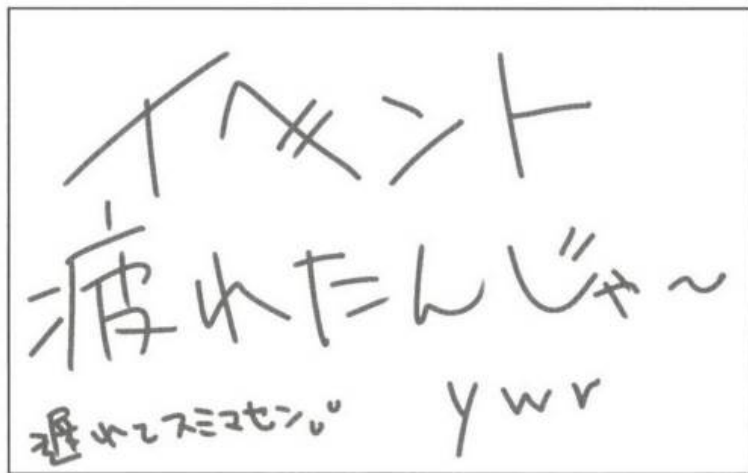 イベント
疲れたんじゃ～
遅れてスミマセン。
ywr